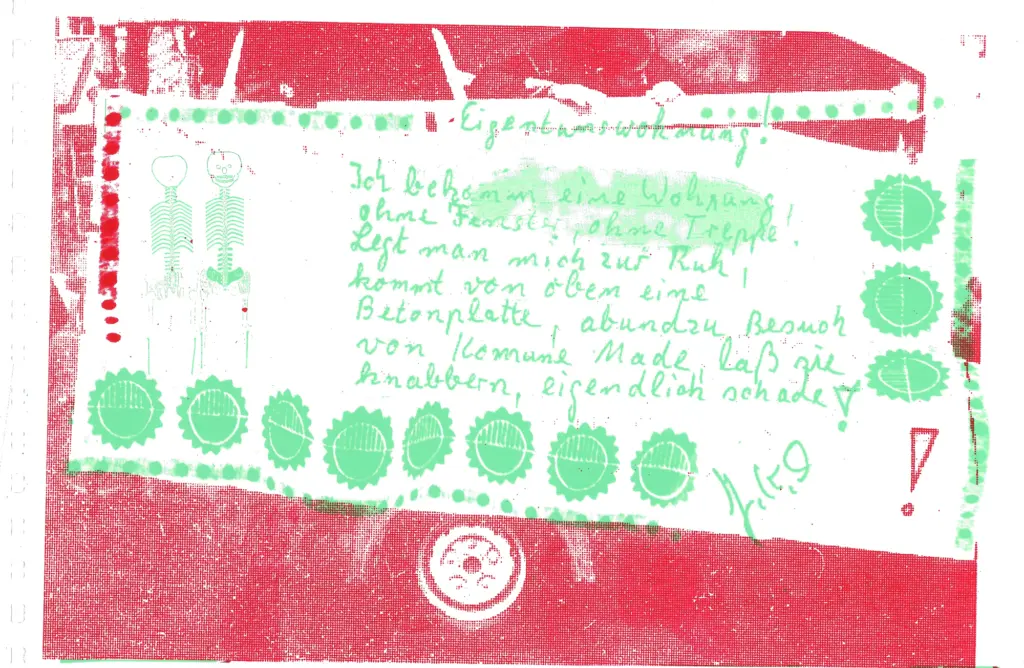 Eigentumswohnung!
Ich bekomm eine Wohnung
ohne Fenster, ohne Treppe!
Legt man mich zur Ruh,
kommt von oben eine
Betonplatte, abundzu Besuch
von Komune Made, laß sie
knabbern, eigendlich schade!